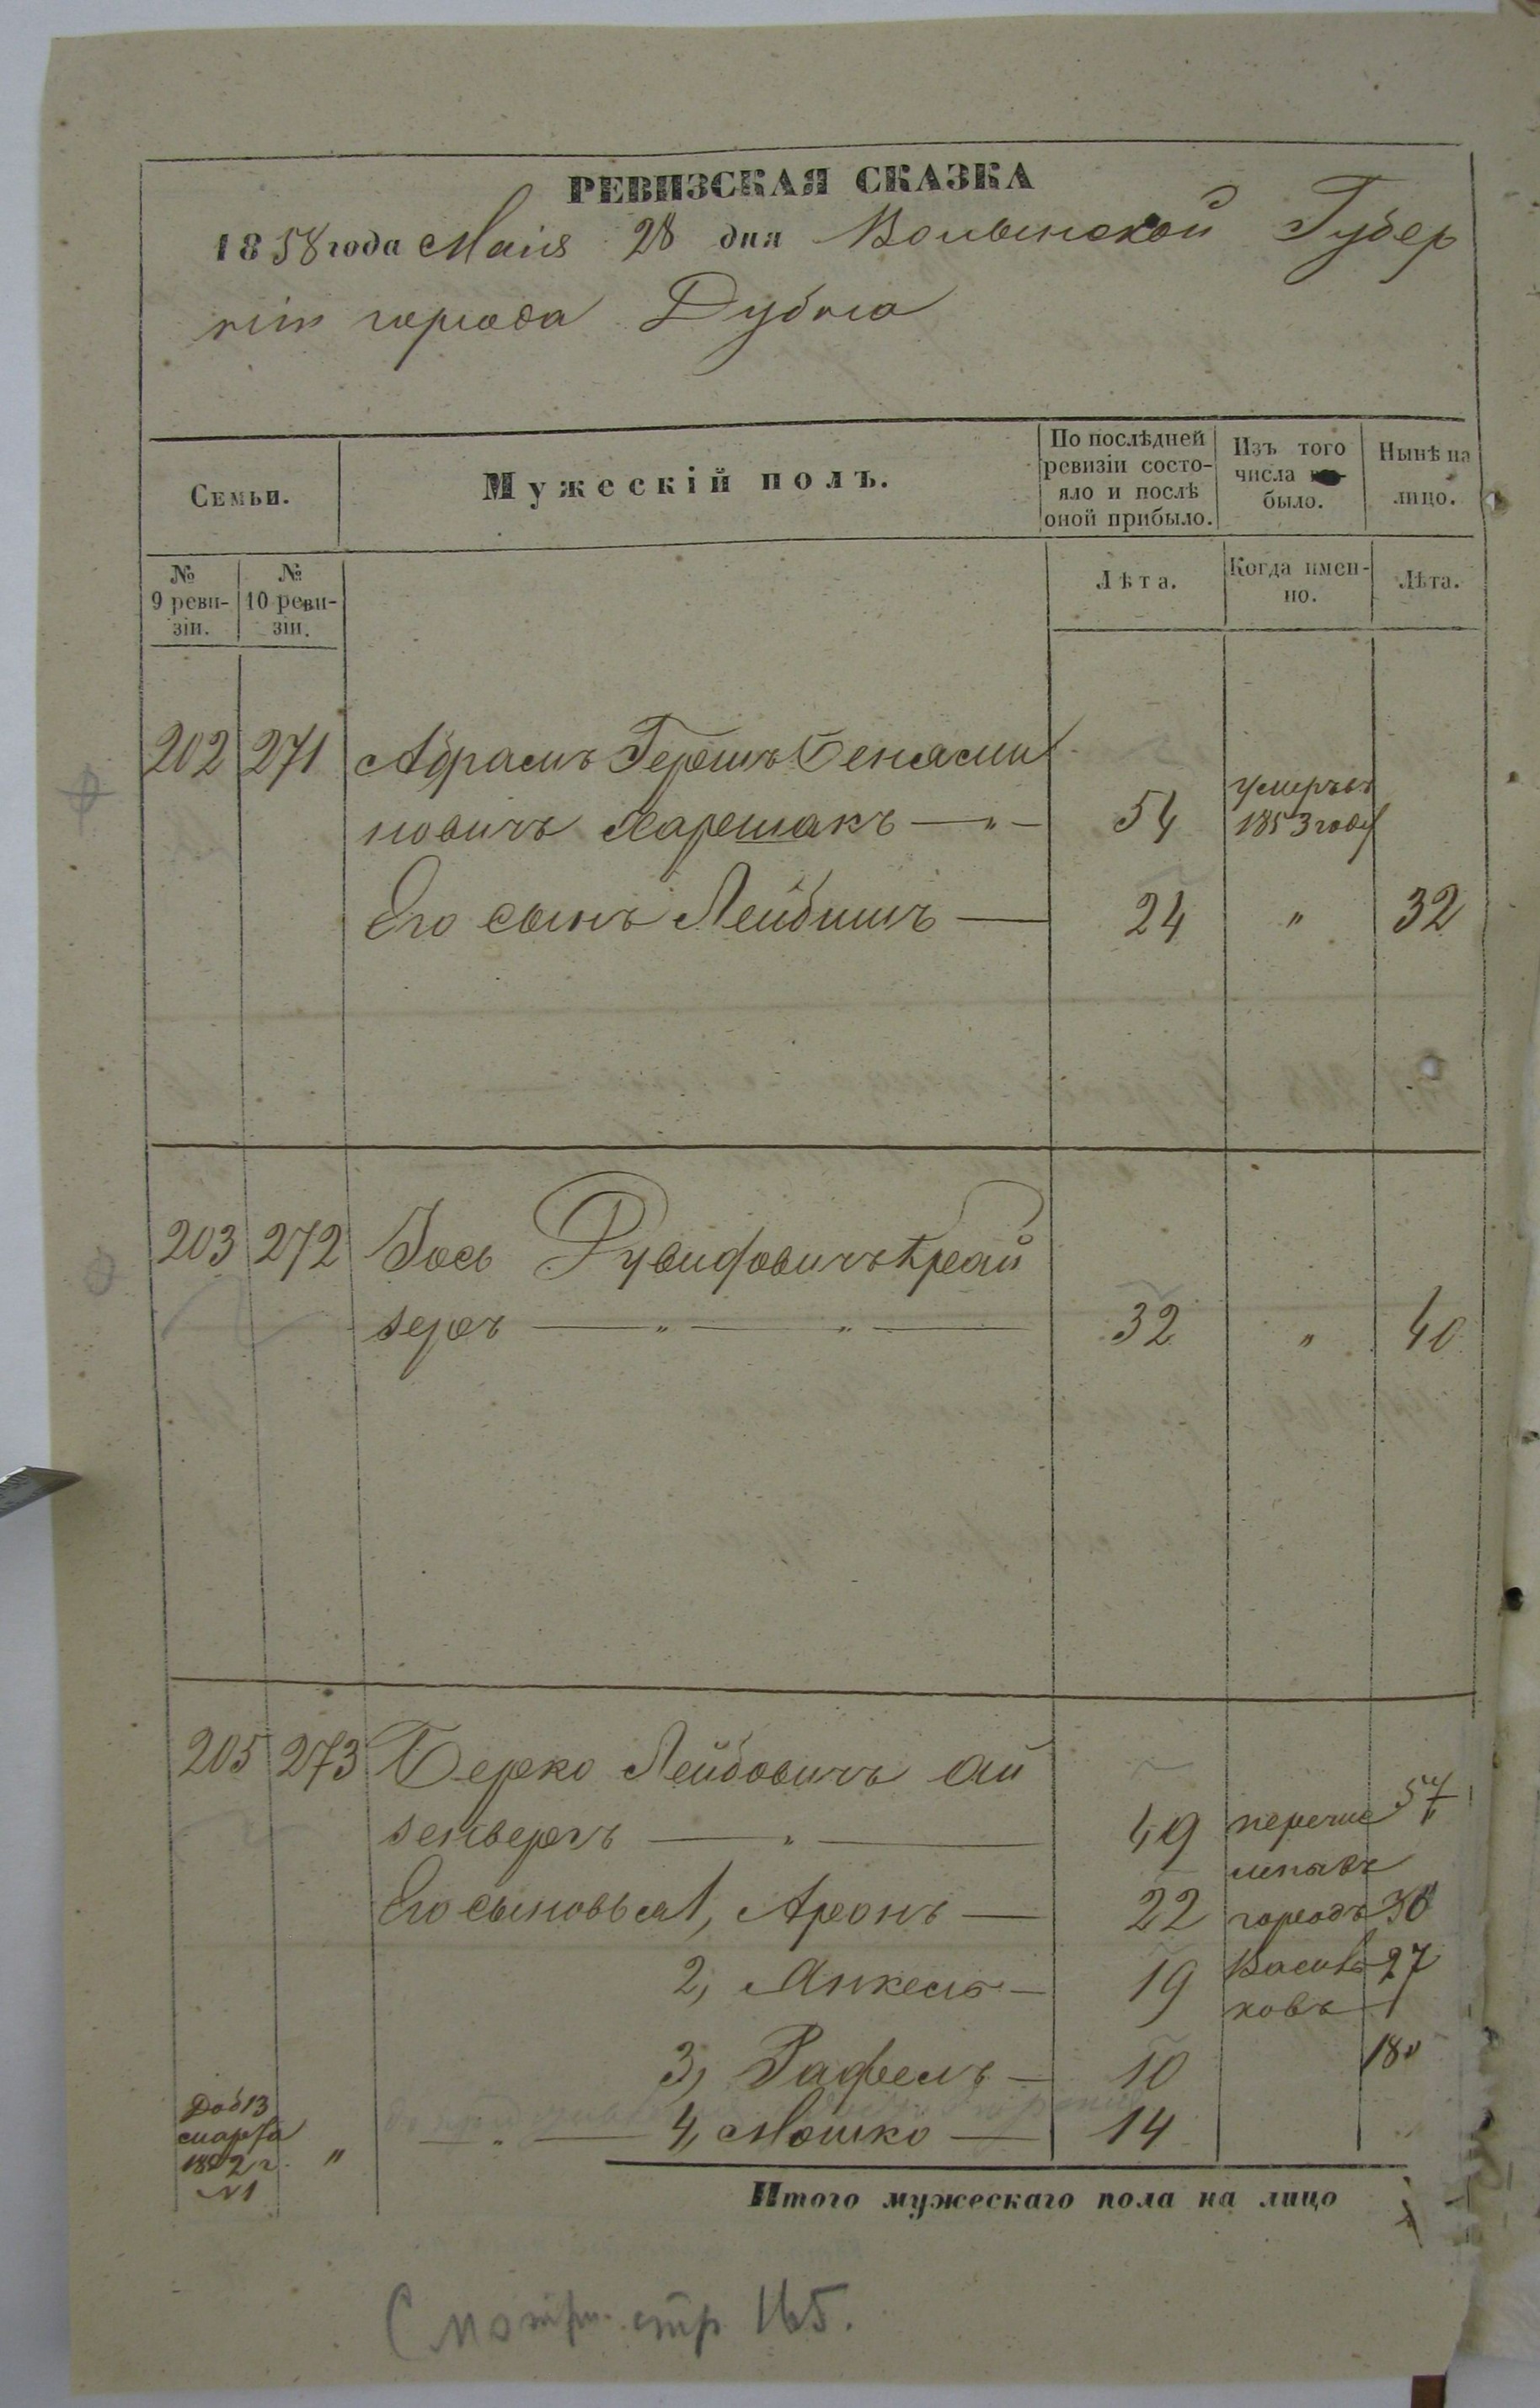 РЕВИЗСКАЯ СКАЗКА
1858 года Маія 28 дня Волынской Губер
ніи города Дубна
Семьи.
Мужескій полъ.
По послѣдней ревизіи состояло и послѣ оной прибыло.
Изъ того числа было.
Нынѣ на лицо.
№ 9 ревизіи.
№ 10 ревизіи.
Лѣта.
Когда именно.
Лѣта.
202 271 Абрамъ Гершъ Бенямин
новичъ Маршакъ 54 умеръ въ 1853 году
Его сынъ Лейбишъ 24 " 32
203 272 Іось Рувиновичъ Край
зеръ 32 " 40
205 273 Берко Лейбовичъ Ай
зенбергъ 49 перечис 57
ленъ въ
Его сыновья 1, Аронъ 22 городъ 30
2, Янкель 19 Василь 27
ковъ
3, Рафель 10 18
Доб 13
марта
"
4, Мошко 14
№1
Итого мужескаго пола на лицо
Смотри стр 165.